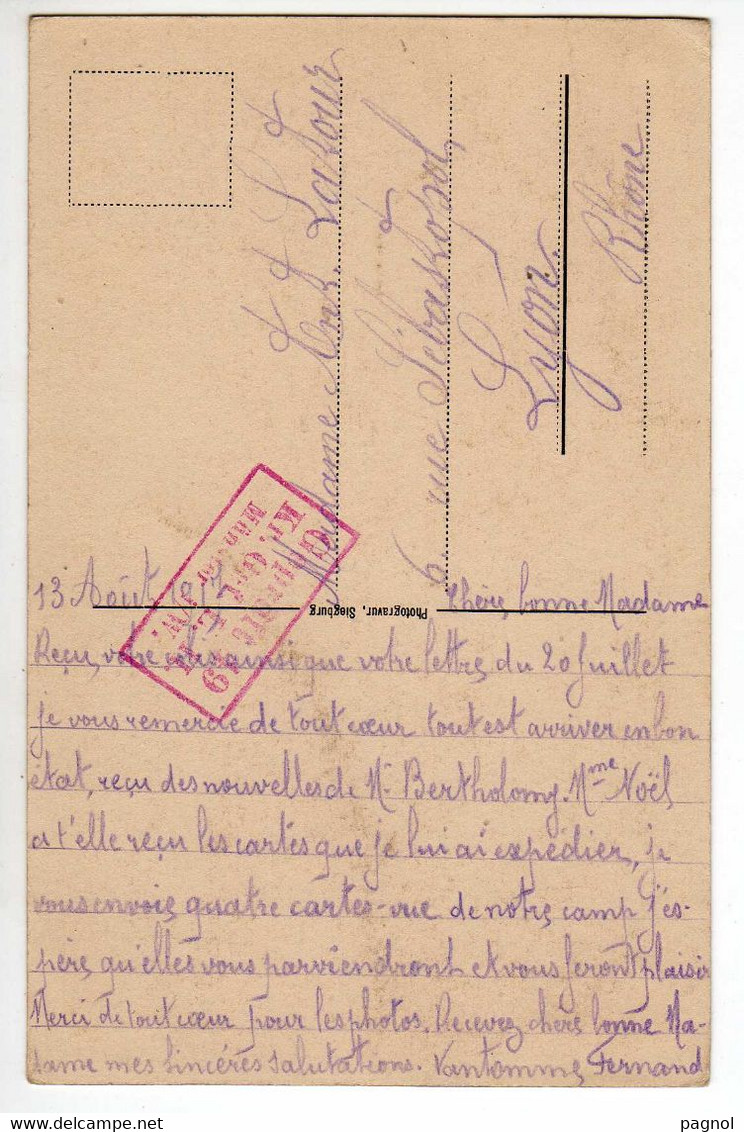 Madame Mce. Latour
6, rue Sébastopol,
Lyon.
Rhône
Geprüft 69
Kr. Gef. L. II
Münster i/W.
Photogravur, Siegburg
13 Août 1917 Chère, bonne Madame
Reçu, votre colis ainsi que votre lettre, du 20 Juillet
je vous remercie de tout cœur tout est arriver en bon
état, reçu des nouvelles de Mr Bertholomy. Mme Noël,
a t'elle reçu les cartes que je lui ai expédier, je
vous envoie, quatre cartes-vue de notre camp j'es-
père, qu'elles vous parviendront et vous feront plaisir
Merci de tout cœur pour les photos. Recevez chère, bonne Ma-
dame mes sincères salutations. Vantomme, Fernand
pagnol